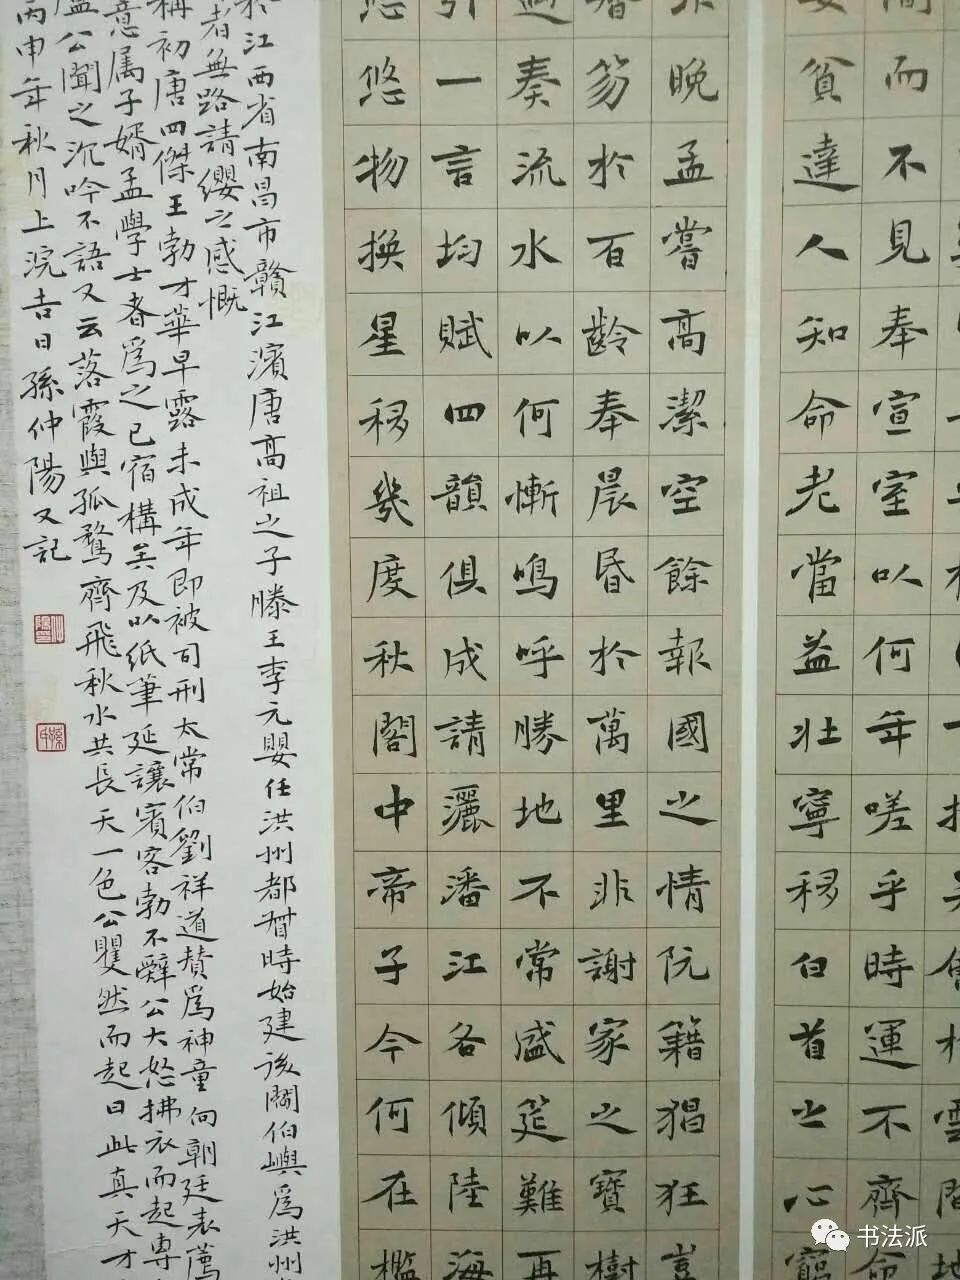 而不見奉宣室以何年嗟乎時運不齊命
貧達人知命老當益壯寧移白首之心窮
晚孟嘗高潔空餘報國之情阮籍猖狂豈
簪笏於百齡奉晨昏於萬里非謝家之寶樹
奏流水以何慚嗚呼勝地不常盛筵難再
引一言均賦四韻俱成請灑潘江各傾陸海
悠悠物換星移幾度秋閣中帝子今何在檻
於江西省南昌市贛江濱唐高祖之子滕王李元嬰任洪州都督時始建後閻伯嶼爲洪州
者無路請纓之感慨
稱初唐四傑王勃才華早露未成年即被司刑太常伯劉祥道贊爲神童向朝廷表薦
意属子婿孟學士者爲之已宿構矣及以紙筆延讓賓客勃不辭公大怒拂衣而起專
孟公聞之沉吟不語又云落霞與孤鶩齊飛秋水共長天一色公矍然而起曰此真天才
丙申年秋月上浣吉日孫仲陽又記
书法派